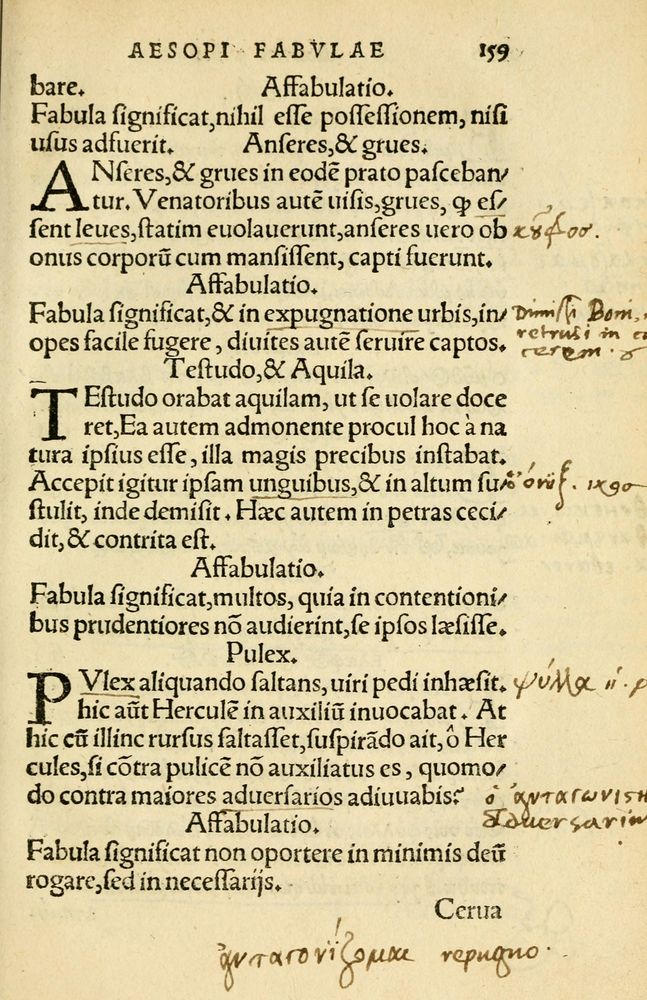 AESOPI FABVLAE 159
bare. Affabulatio.
Fabula ſignificat,nihil eſſe poſſeſſionem, niſi
uſus adfuerit. Anſeres,& grues.
ANſeres,& grues in eodē prato paſceban/
tur. Venatoribus autē uiſis,grues, ꝙ eſ/
ſent leues,ſtatim euolauerunt,anſeres uero ob
κȣ̃φοσ.
onus corporū cum manſiſſent, capti fuerunt.
Affabulatio.
Fabula ſignificat,& in expugnatione urbis,in/
Dimiſſi Boni,
opes facile fugere, diuites autē ſeruire captos.
retruſi in
cerem.
Teſtudo,& Aquila.
TEſtudo orabat aquilam, ut ſe uolare doce
ret,Ea autem admonente procul hoc à na
tura ipſius eſſe, illa magis precibus inſtabat.
Accepit igitur ipſam unguibus,& in altum ſu
ſtulit, inde demiſit. Hæc autem in petras ceci/
dit,& contrita eſt.
Affabulatio.
Fabula ſignificat,multos, quia in contentioni/
bus prudentiores nō audierint,ſe ipſos læſiſſe.
Pulex.
PVlex aliquando ſaltans, uiri pedi inhæſit.
ψύλλα
hic aūt Herculē in auxiliū inuocabat. At
hic cū illinc rurſus ſaltaſſet,ſuſpirādo ait, ô Her
cules,ſi cōtra pulicē nō auxiliatus es, quomo/
do contra maiores aduerſarios adiuuabis?
ὁ ἀνταγωνιστη
Aduerſariu
Affabulatio.
Fabula ſignificat non oportere in minimis deū
rogare,ſed in neceſſarijs.
Cerua
ἀνταγονίζομαι repugno.